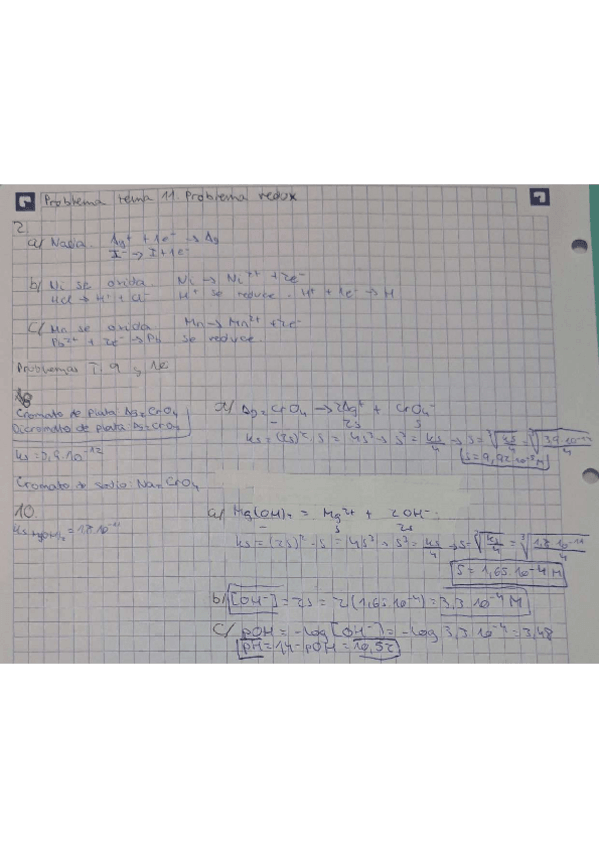 Problema tema 11. Problema redox
2.
a) Nada. Ag⁺ + 1e⁻ → Ag
I⁻ → I + 1e⁻
b) Ni se oxida. Ni → Ni²⁺ + 2e⁻
HCl → H⁺ + Cl⁻ H⁺ se reduce. H⁺ + 1e⁻ → H
c) Mn se oxida. Mn → Mn²⁺ + 2e⁻
Pb²⁺ + 2e⁻ → Pb se reduce.
Problemas 9 y
Cromato de plata: Ag₂CrO₄
Dicromato de plata:
a) Ag₂CrO₄ → 2Ag⁺ + CrO₄
– 2s s
ks = (2s)² · s = 4s³ → s³ = ks/4 → s = ∛(ks/4) = ∛(3,9·10⁻¹²/4)
s = 9,92·10⁻⁵ M
ks = 3,9·10⁻¹²
Cromato de sodio: Na₂CrO₄
10.
ks Mg(OH)₂ = 1,8·10⁻¹¹
a) Mg(OH)₂ = Mg²⁺ + 2OH⁻
– s 2s
ks = (2s)² · s = 4s³ → s³ = ks/4 → s = ∛(ks/4) = ∛(1,8·10⁻¹¹/4)
s = 1,65·10⁻⁴ M
b) [OH⁻] = 2s = 2(1,65·10⁻⁴) = 3,3·10⁻⁴ M
c) pOH = -log[OH⁻] = -log 3,3·10⁻⁴ = 3,48
pH = 14 - pOH = 10,52